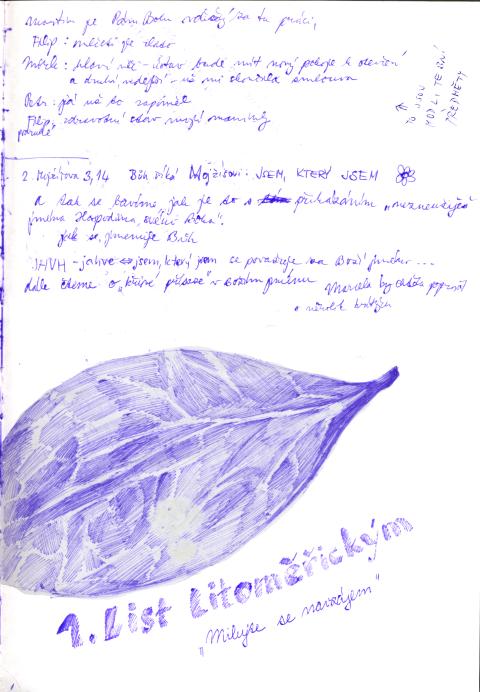 Martin je Pánu Bohu vděčný za tu práci,
Filip: mlčeti je zlato
hlavní věc - ústav bude mít nový pokoje k otevření
a druhý, vedlejší - už mi skončila smlouva
Petr: já už to zapomněl
Filip: zdravotní stav mojí maminky
podruhé
TO JSOU
MODLITEBNÍ
PŘEDMĚTY
2 Mojžíšova 3,14 Bůh říká Mojžíšovi: JSEM, KTERÝ JSEM
a tak se bavíme, jak je to s přikázáním „nezneužiješ
jména Hospodina, svého Boha".
Jak se jmenuje Bůh
JHVH - jahve jsem, který jsem se považuje za Boží jméno...
dále čteme o v Božím jménu
Marcela by chtěla poprosit
o několik krátkých
1. List Litoměřickým
„Milujte se navzájem"